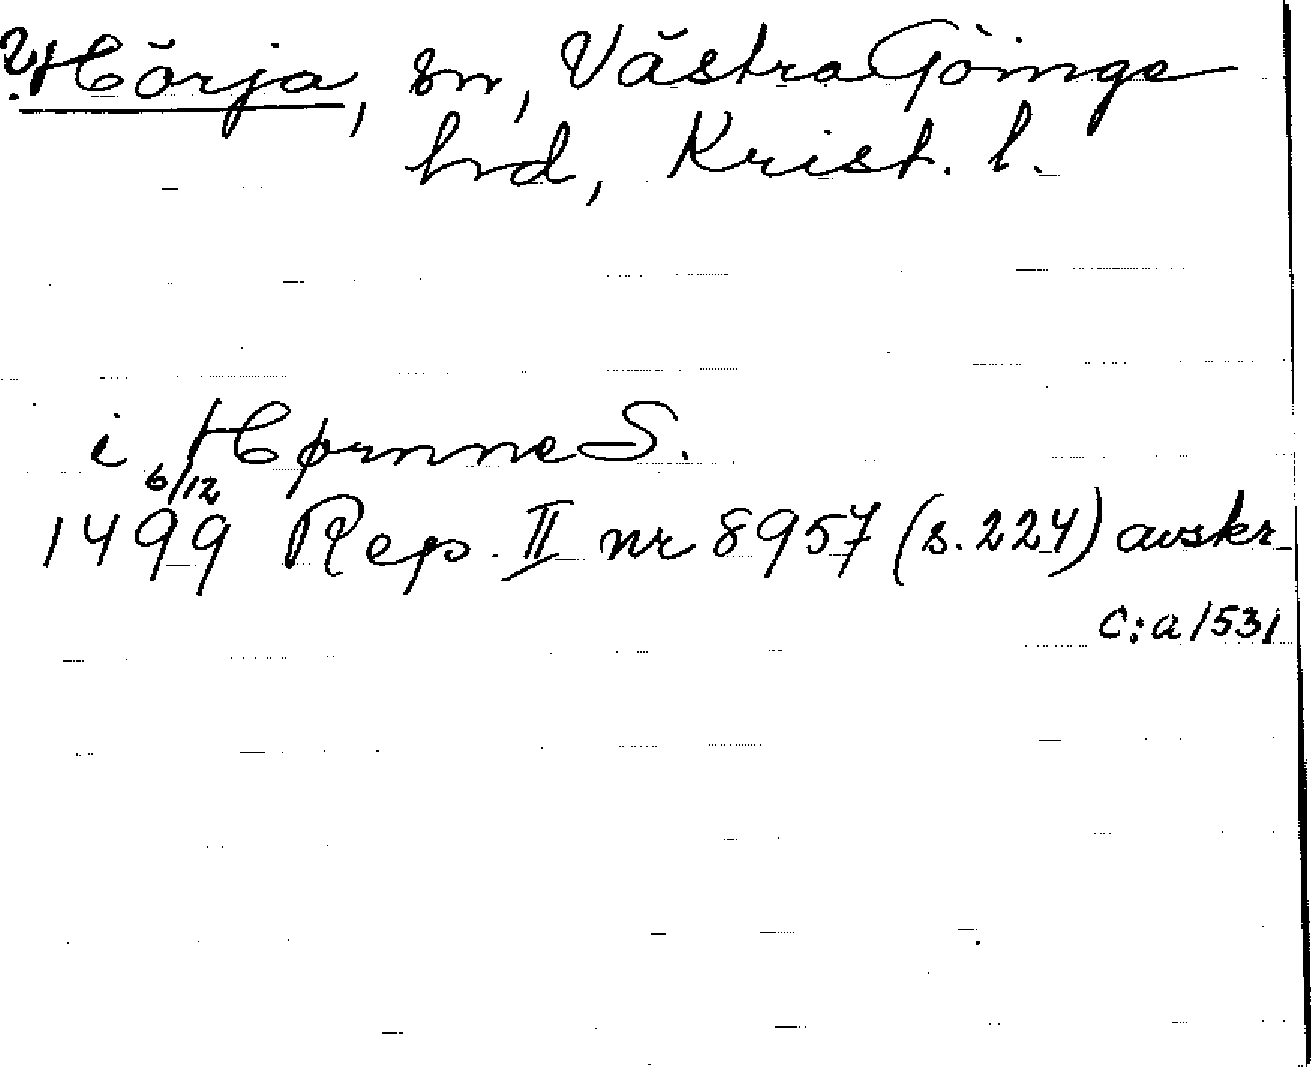 ? Hörja, sn, Västra Göinge
hrd, Krist. l.
i Hørnne S.
6/12
1499 Rep. II nr 8957 (s. 224) avskr
c:a 1531